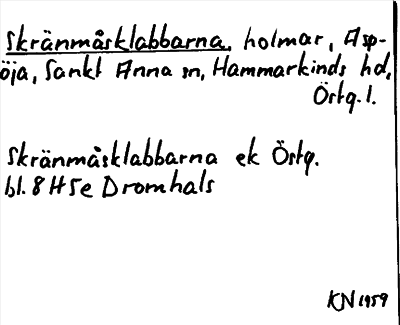 Skränmåsklabbarna, holmar, Asp-
öja, Sankt Anna sn, Hammarkinds hd,
Östg. l.
Skränmåsklabbarna ek Östg.
bl. 8 H 5e Dromhals
KN 1959